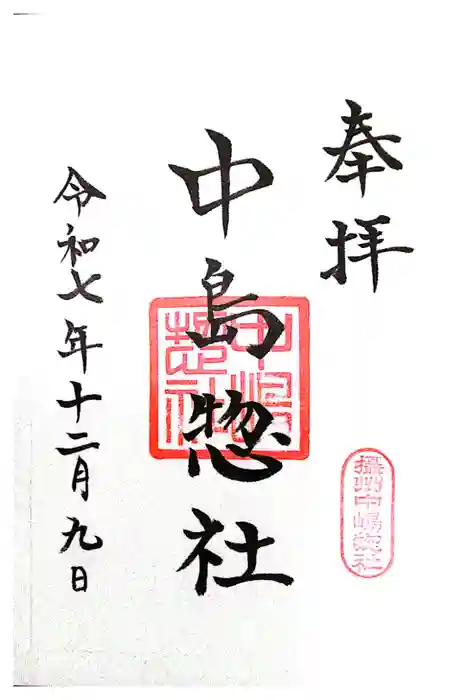 奉拝
中島惣社
中嶋惣社
摂州中嶋惣社
令和七年十二月九日